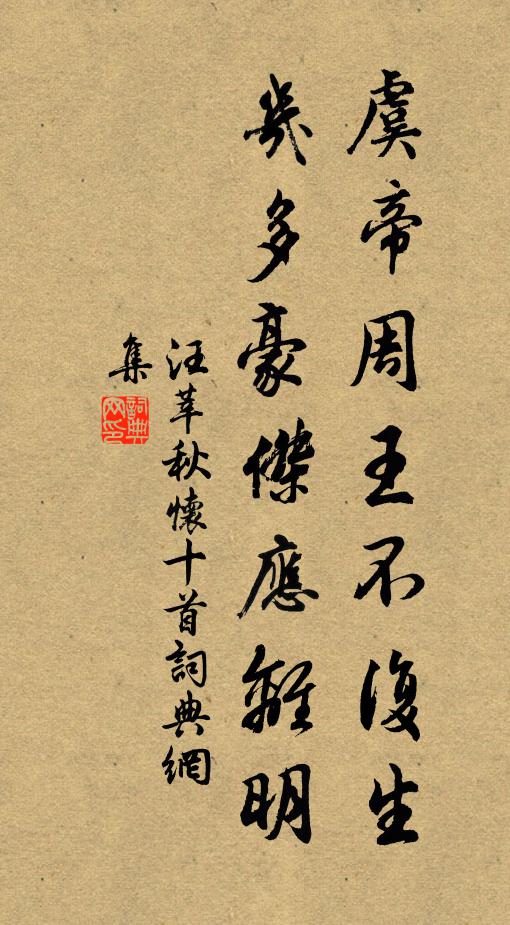 虞帝周王不復生
幾多豪傑應離明
汪莘秋懷十首詞典網
集
詞典网印